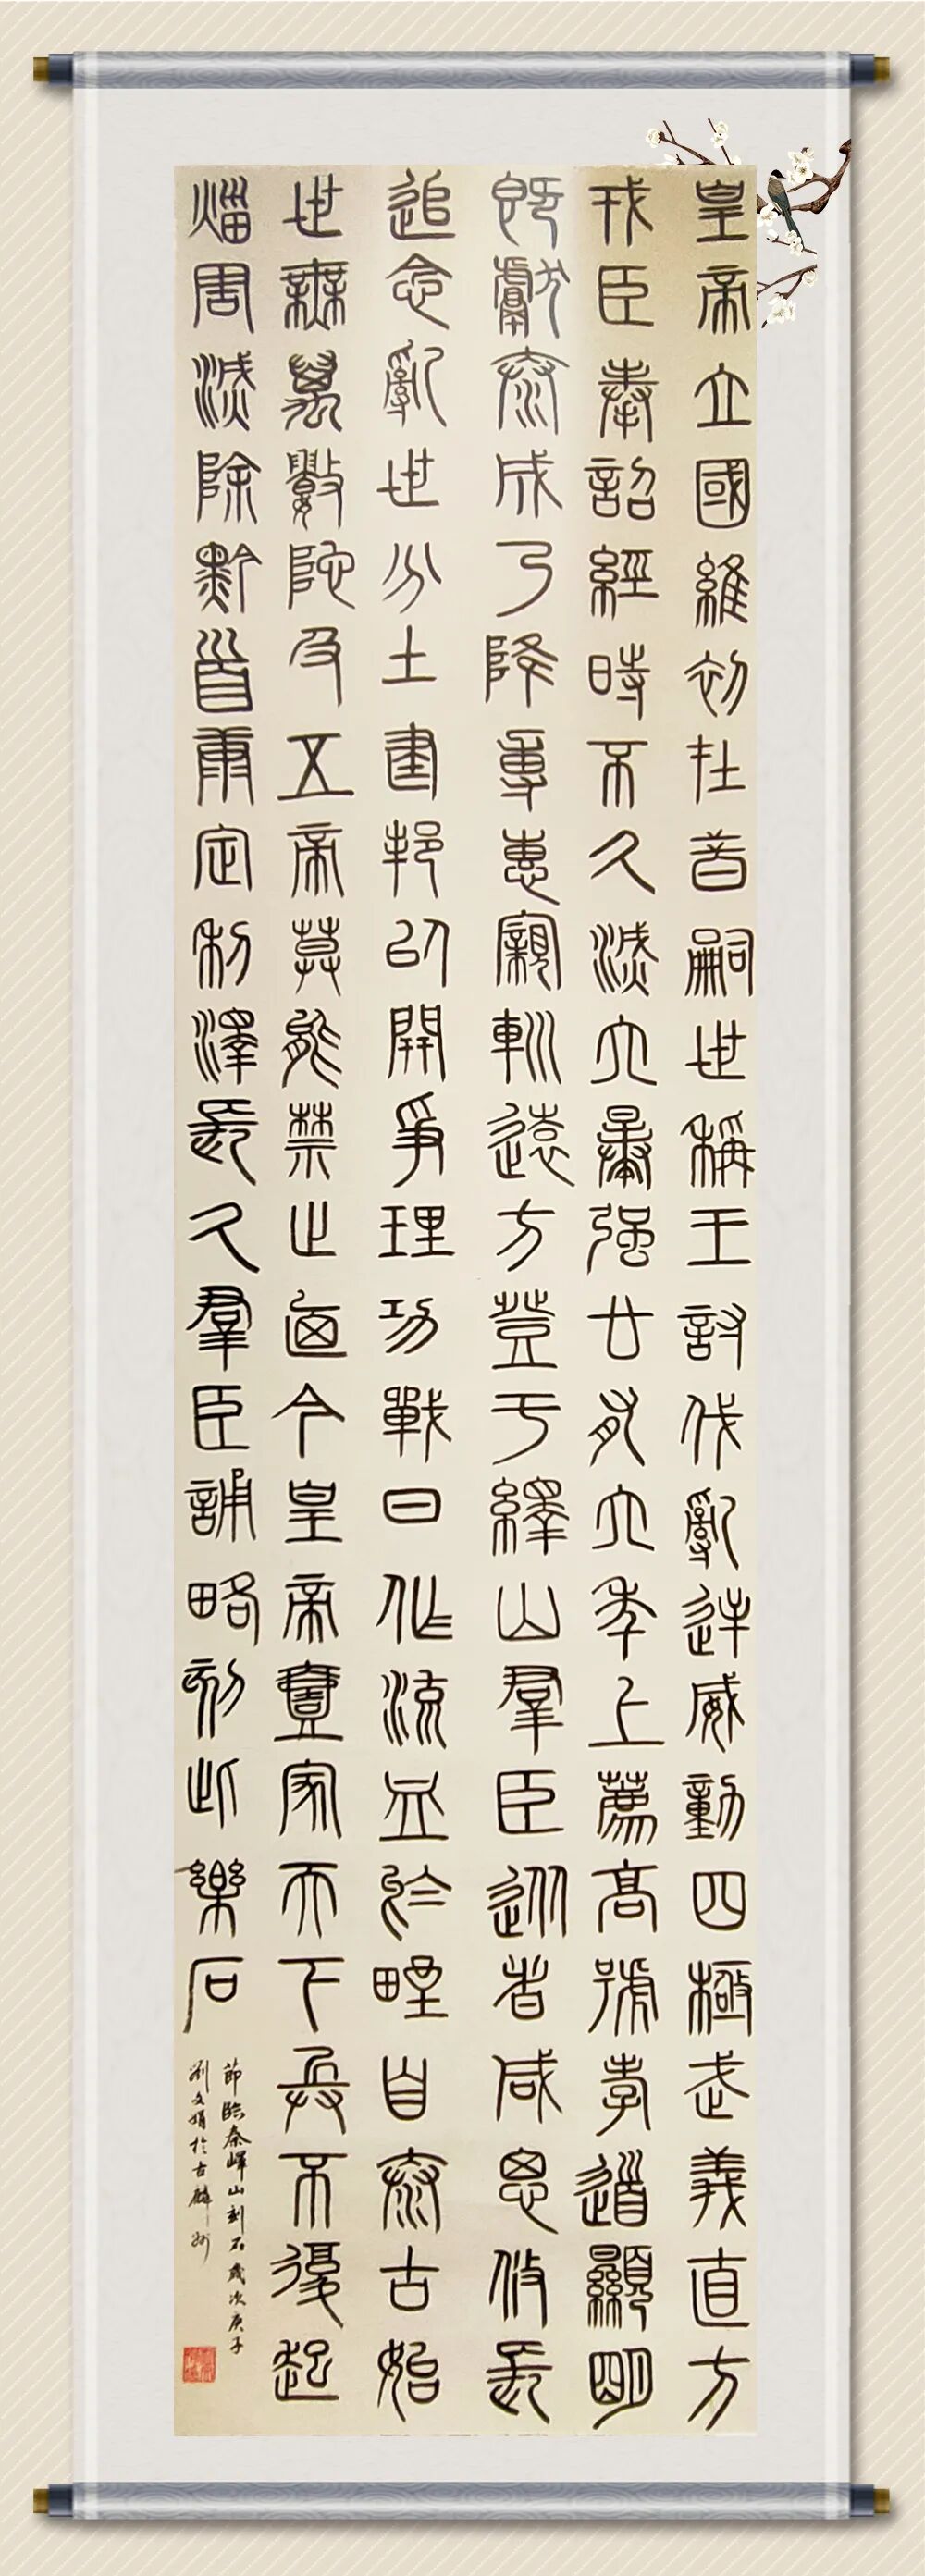 皇帝立國維初在昔嗣世稱王討伐亂逆威動四極武義直方
戎臣奉詔經時不久滅六暴强廿有六年上薦高號孝道顯明
既獻泰成乃降專惠親巡遠方登于繹山羣臣從者咸思攸長
追念亂世分土建邦以開爭理功戰日作流血於野自泰古始
世無萬數陀及五帝莫能禁止廼今皇帝壹家天下兵不復起
災害滅除黔首康定利澤長久羣臣誦略刻此樂石
節臨秦嶧山刻石歲次庚子
劉文娟於古麟州